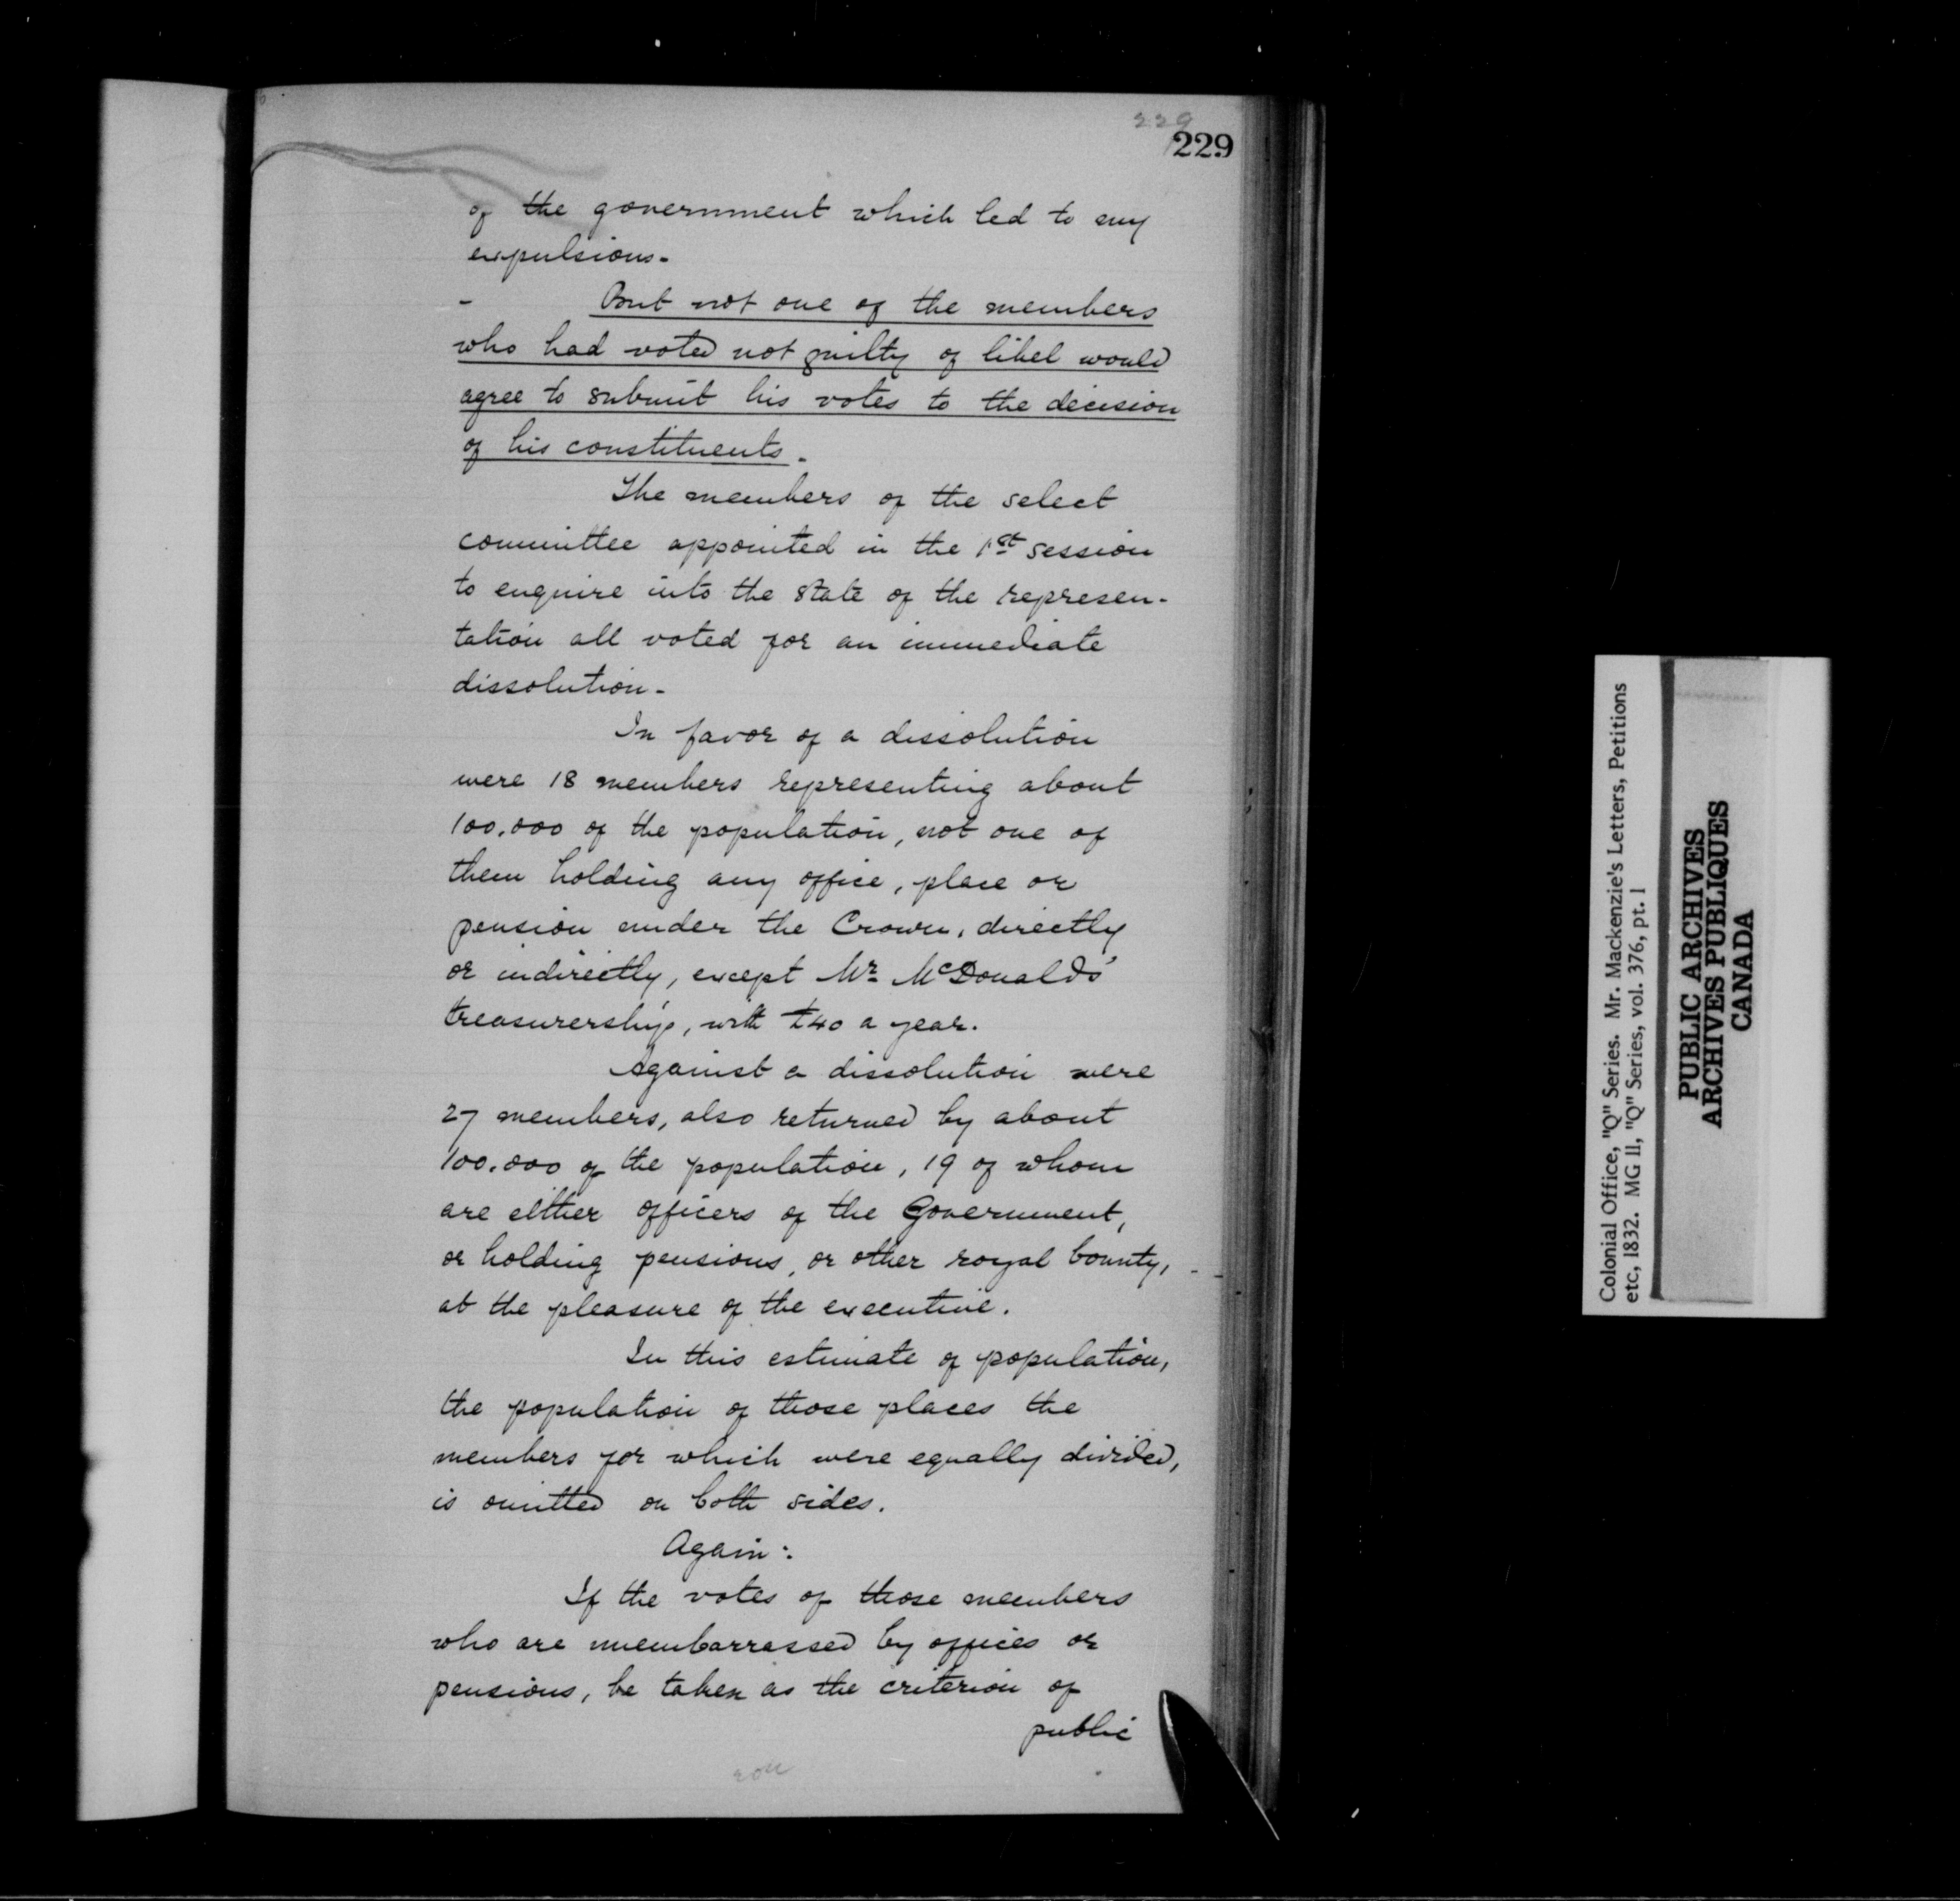 229
229
of the government which led to my
expulsions-
- But not one of the members
who had voted not guilty of libel would
agree to submit his votes to the decision
of his constituents.
The members of the select
committee appointed in the 1st session
to enquire into the state of the represen-
tation all voted for an immediate
dissolution-
In favor of a dissolution
were 18 members representing about
100.000 of the population, not one of
them holding any office, place or
pension under the Crown, directly
or indirectly, except Mr McDonald's
treasurership, with £40 a year.
Against a dissolution were
27 members, also returned by about
100.000 of the population, 19 of whom
are either officers of the Government,
or holding pensions, or other royal bounty, - -
at the pleasure of the executive.
In this estimate of population,
the population of those places the
members for which were equally divided,
is omitted on both sides.
Again:
If the votes of those members
who are unembarrassed by offices or
pensions, be taken as the criterion of
public
Colonial Office, "Q" Series. Mr. Mackenzie's Letters, Petitions
etc, 1832. MG 11, "Q" Series, vol. 376, pt. 1
PUBLIC ARCHIVES
ARCHIVES PUBLIQUES
CANADA